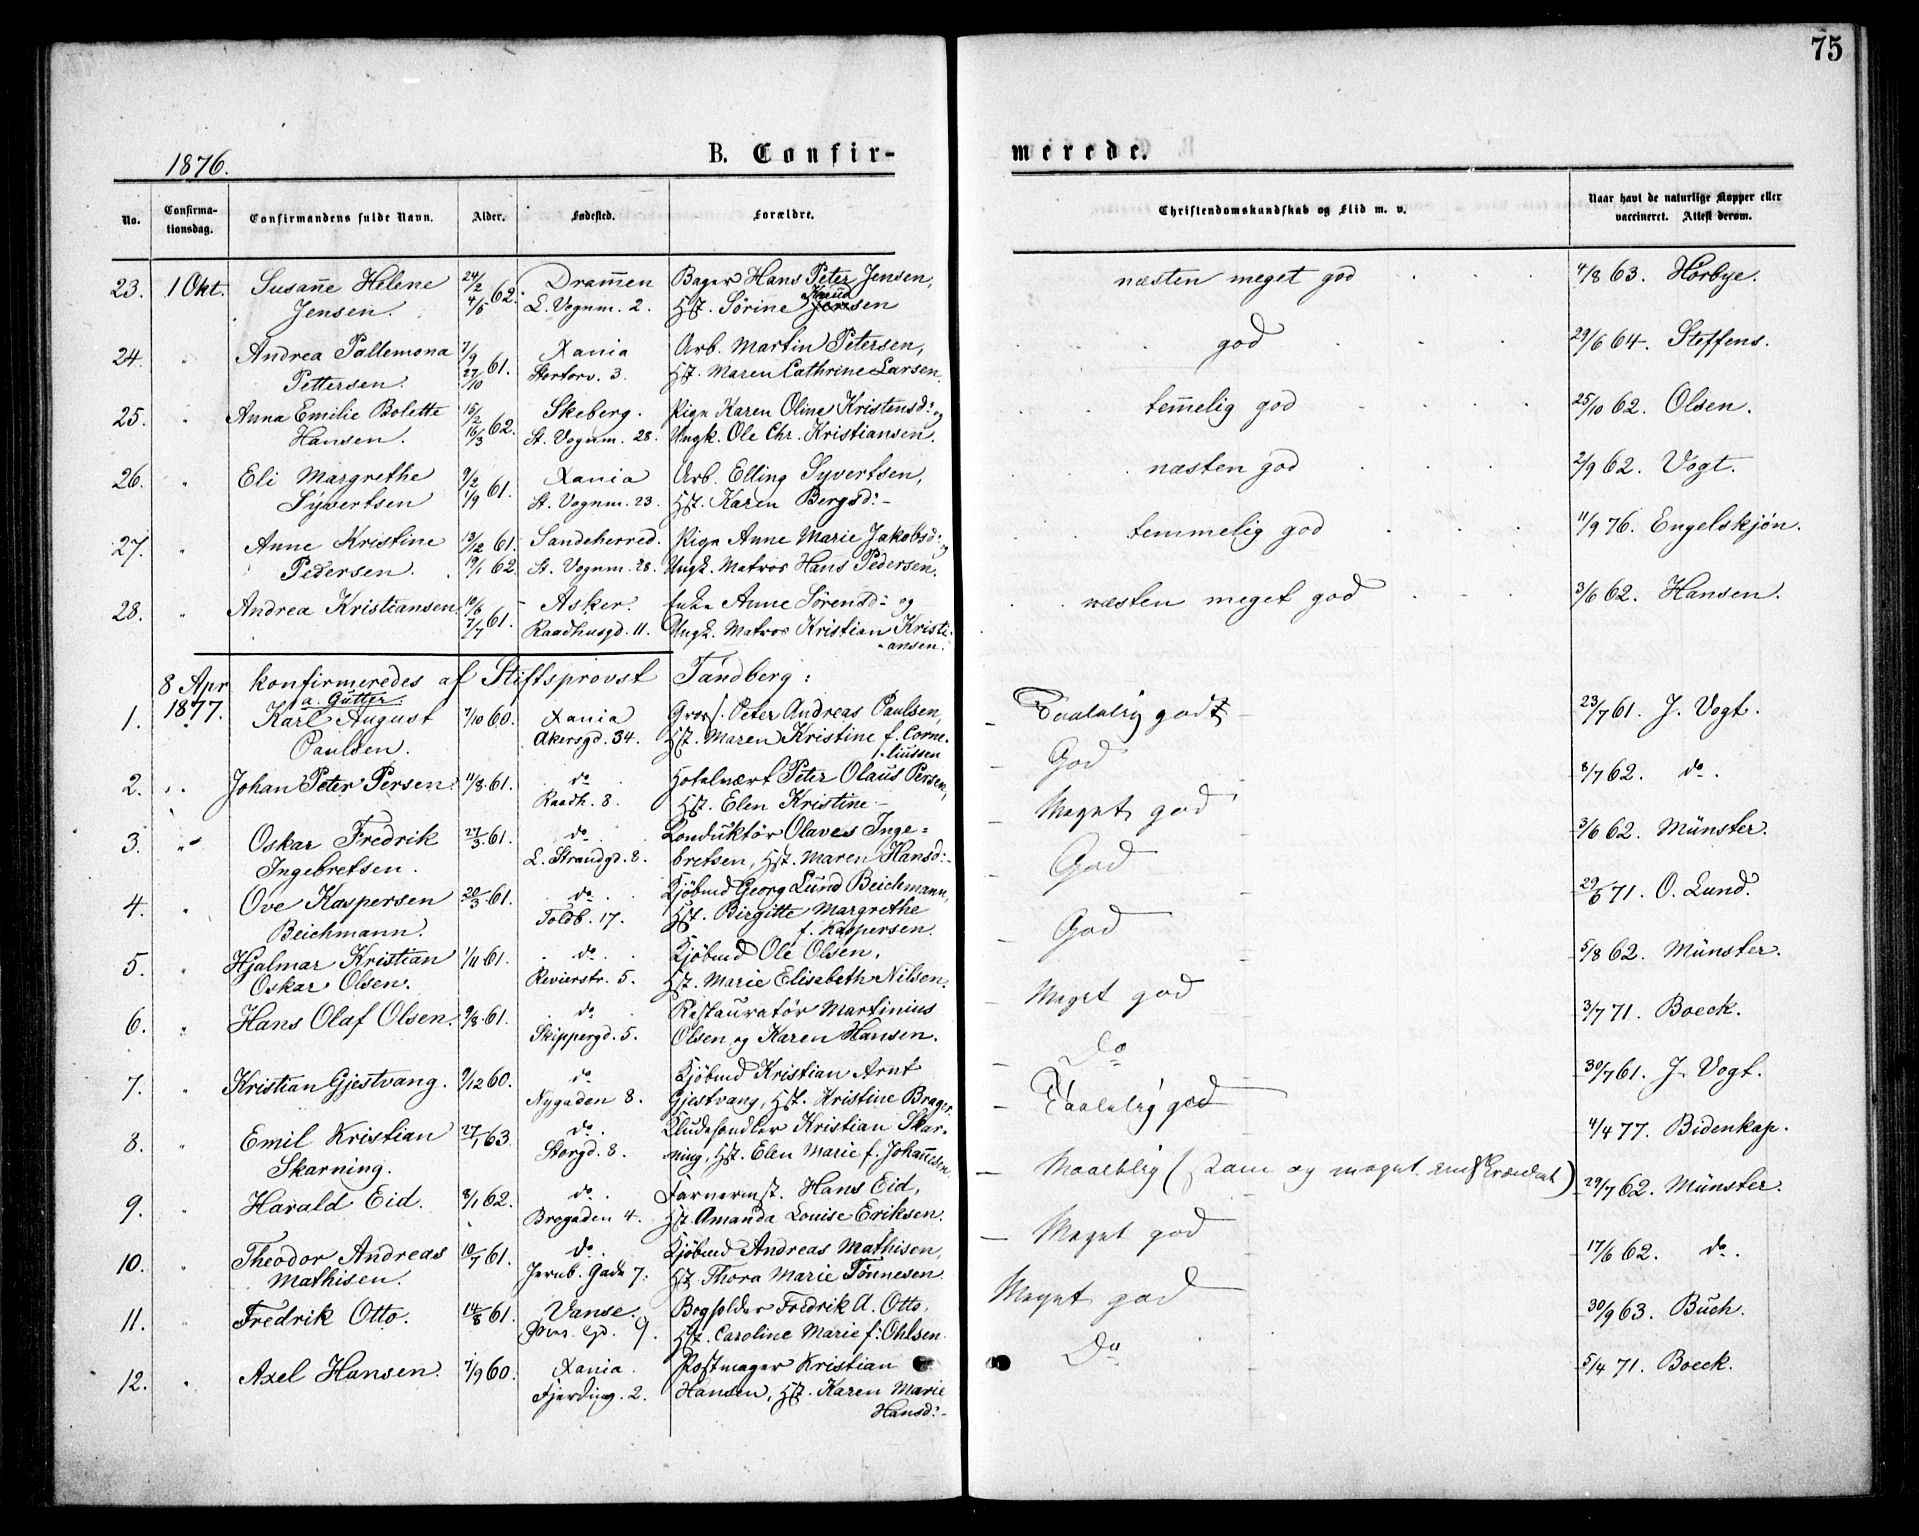 75
1876.
B. Confir-
merede.
No.
Confirma-
tionsdag.
Confirmandens fulde Navn.
Alder.
Fødested.
Forældre.
Christendomskundskab og Flid m. v.
Naar havt de naturlige Kopper eller
vaccineret. Attest derom.
23. 1 Okt. Susan̅e Helene 24/2 Dram̅en Bager Hans Peter Jensen, næsten meget god 4/8 63. Hørbye.
Jensen. 4/5 62. L. Vognm. 2. Hst. Sörine Jensen
24. " Andrea Pallemona 7/9 Xania Arb. Martin Petersen, god 29/6 64. Steffens.
Pettersen. 27/10 61. Stortorv. 3. Hst. Maren Cathrine Larsen.
25. " Anna Emilie Bolette 15/2 Skeberg. Pige Karen Oline Kristensd: og tem̅elig god 25/10 62. Olsen.
Hansen. 16/3 62. St. Vognm. 28. Ungk. Ole Chr. Kristiansen.
26. " Eli Margrethe 9/2 Xania Arb. Elling Syvertsen, næsten god 2/9 62. Vogt.
Syvertsen 1/9 61. St. Vognm. 23. Hst. Karen Bergsd:-
27. " Anne Kristine 13/12 61. Sandeherred. Pige Anne Marie Jakobsd: og temmelig god 11/9 76. Engelskjön.
Pedersen. 19/1 62. St. Vognm. 28. Ungk. Matros Hans Pedersen.
28. " Andrea Kristiansen 10/6 Asker. Enke Anne Sörensd:- og næsten meget god 3/6 62. Hansen.
7/7 61. Raadhusgd. 11. Ungk. Matros Kristian Kristi-
ansen.
8 Apr konfirmeredes af Stiftsprovst Tandberg:
1877. a. Gutter.
1. " Karl August 7/10 60. Xania Gross. Peter Andreas Paulsen, Taalelig godt 23/7 61. J. Vogt.
Paulsen. Akersgd. 34. Hst. Maren Kristine f. Corne-
liussen
2. " Johan Peter Persen 11/8 61. do Hotelvært Peter Olaus Persen, God 8/7 62. do.
Raadh. 8. Hst. Elen Kristine-
3. " Oskar Fredrik 27/3 61. do Konduktör Olaves Inge- Meget god 3/6 62. Münster.
Ingebretsen. L. Strandgd. 8. bretsen, Hst. Maren Hansd:-
4. " Ove Kaspersen 20/3 61. do Kjöbmd Georg Lund Beichmann, God 29/6 71. O. Lund.
Beichmann. Toldb. 17. Hst. Birgitte Margrethe
f. Kaspersen.
5. " Hjalmar Kristian 1/11 61. do Kjöbmd Ole Olsen, God 5/8 62. Münster.
Oskar Olsen. Revierstr. 5. Hst. Marie Elisabeth Nilsen.
6. " Hans Olaf Olsen. 9/8 61. do Restauratör Martinius Meget god 3/7 71. Boeck.
Skippergd. 5. Olsen og Karen Hansen.
7. " Kristian Gjestvang. 9/12 60. do Kjöbmd Kristian Arnt Do 30/7 61. J. Vogt.
Nygaden 8. Gjestvang, Hst. Kristine Brager.
8. " Emil Kristian 27/7 63. do Kludehandler Kristian Skar- Taalelig god 4/4 77. Bidenkap.
Skarning. Storgd. 8. ning, Hst. Elen Marie f. Johan̅esen
9. " Harald Eid. 8/1 62. do Farvermst. Hans Eid, Maadelig ( og meget ) 29/7 62. Münster.
Brogaden 4. Hst. Amanda Louise Eriksen.
10. " Theodor Andreas 10/7 61. do Kjöbmd Andreas Mathisen, Meget god 17/6 62. do.
Mathisen. Jernb. Gade 7. Hst. Thora Marie Tönnesen
11. " Fredrik Otto. 14/8 61. Vanse. Bogholder Fredrik A. Otto, Meget god 30/9 63. Buch.
9. Hst. Caroline Marie f. Ohlsen
12. " Axel Hansen. 7/9 60. Xania. Postmager Kristian Do 5/4 71. Boeck.
Fjerding. 2. Hansen, Hst. Karen Marie
Hansd:-